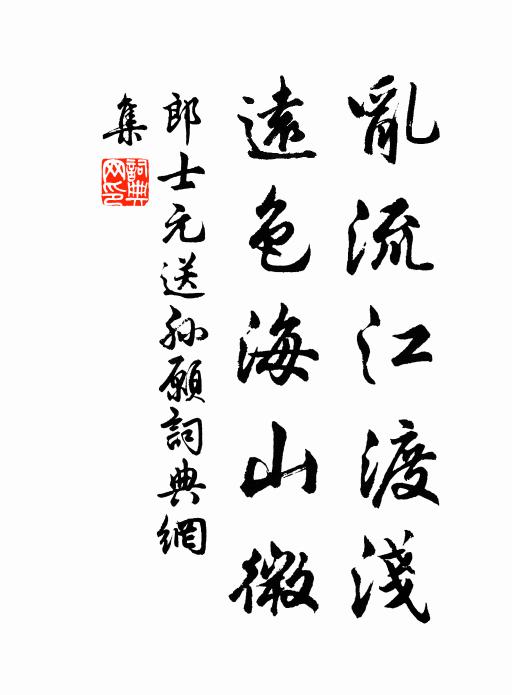 亂流江渡淺
遠色海山微
郎士元送孙願詞典網
集
詞典网印